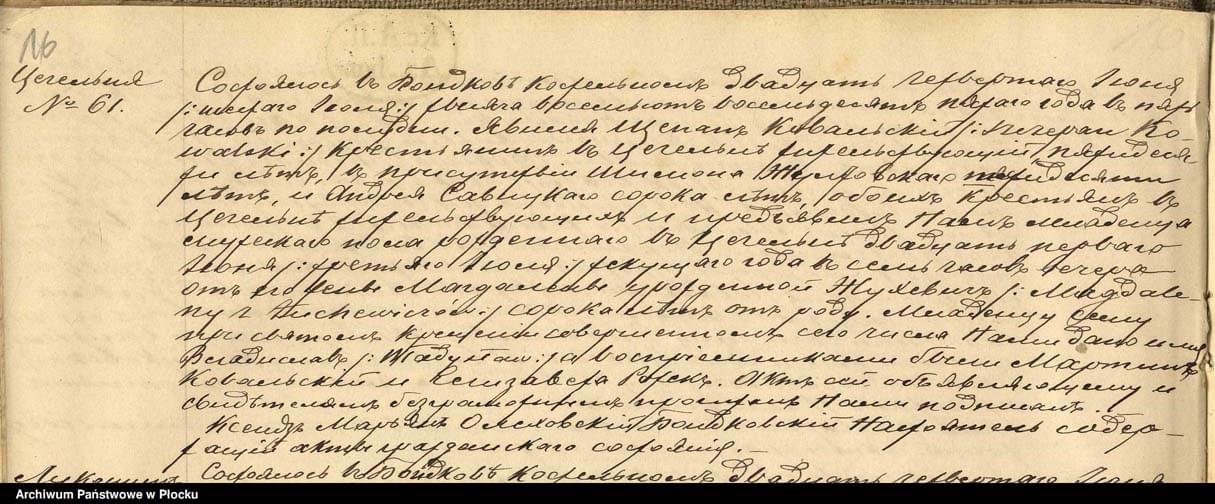 16
Цегельня
№ 61.
Состоялось въ Бондковѣ Косцельномъ двадцать четвертаго Іюня
/: шестаго Іюля :/ тысяча восемьсотъ восемьдесятъ пятаго года въ пять
часовъ по полудни. Явился Щепанъ Ковальскій /: Szczepan Ko-
walski :/ крестьянинъ въ Цегельнѣ жительствующій, пятидеся-
ти лѣтъ, въ присутствіи Шимона пятидесяти
лѣтъ, и Андрея Савицкаго сорока лѣтъ, обоихъ крестьянъ въ
Цегельнѣ жительствующихъ и предъявилъ Намъ младенца
мужескаго пола рожденнаго въ Цегельнѣ двадцать перваго
Іюня /: третьяго Іюля :/ текущаго года въ семь часовъ вечера
отъ его жены Магдалены урожденной Жухевичъ /: Magdale-
ny z Żuchewiczów :/ сорока лѣтъ отъ роду. Младенцу сему
при святомъ крещеніи совершенномъ сего числа Нами дано имя
Владиславъ, а воспріемниками были Мартинъ
Ковальскій и Елизавета. Актъ сей объявляющему и
свидѣтелямъ безграмотнымъ прочитанъ Нами подписанъ.
Ксендзъ Марьянъ Бондковскій Настоятель содер-
жащій акты гражданскаго состоянія.
Состоялось въ Бондковѣ Косцельномъ двадцать четвертаго Іюня
Archiwum Państwowe w Płocku